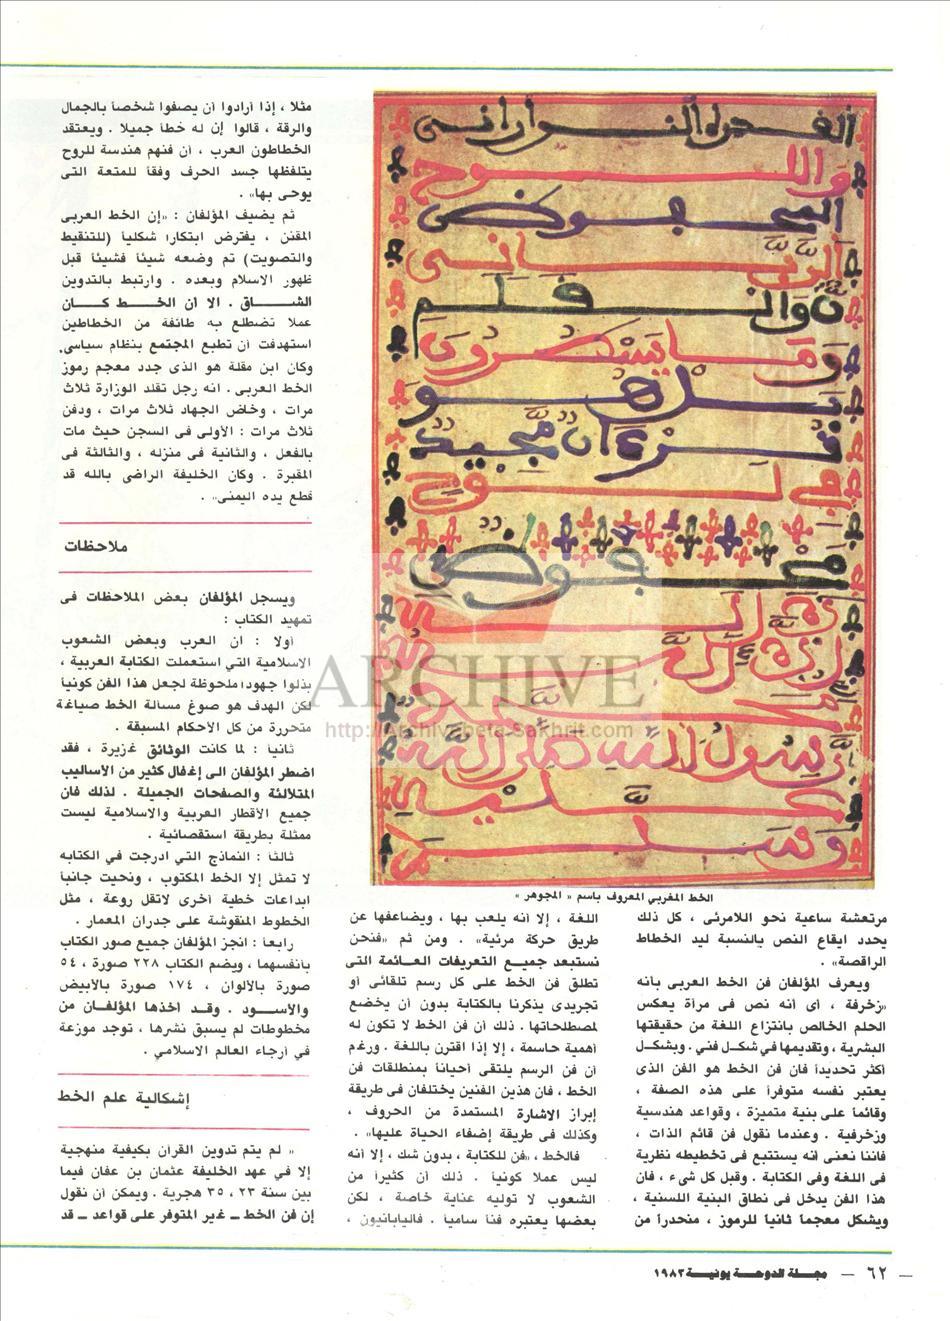 الخط المغربي المعروف باسم « المجوهر »
مرتعشة ساعية نحو اللامرئى ، كل ذلك
يحدد ايقاع النص بالنسبة ليد الخطاط
الراقصة» .
ويعرف المؤلفان فن الخط العربى بانه
«زخرفة ، أى أنه نص فى مرآة يعكس
الحلم الخالص بانتزاع اللغة من حقيقتها
البشرية ، وتقديمها في شكل فني . وبشكل
أكثر تحديداً فان فن الخط هو الفن الذى
يعتبر نفسه متوفراً على هذه الصفة ،
وقائماً على بنية متميزة ، وقواعد هندسية
وزخرفية . وعندما نقول فن قائم الذات ،
فاننا نعنى أنه يستتبع فى تخطيطه نظرية
فى اللغة وفى الكتابة . وقبل كل شىء ، فان
هذا الفن يدخل فى نطاق البنية اللسنية ،
ويشكل معجماً ثانياً للرموز ، منحدراً من
اللغة ، إلا أنه يلعب بها ، ويضاعفها عن
طريق حركة مرئية» . ومن ثم «فنحن
نستبعد جميع التعريفات العائمة التى
تطلق فن الخط على كل رسم تلقائى أو
تجريدى يذكرنا بالكتابة بدون أن يخضع
لمصطلحاتها . ذلك أن فن الخط لا تكون له
أهمية حاسمة ، إلا إذا اقترن باللغة . ورغم
أن فن الرسم يلتقى أحياناً بمنطلقات فن
الخط ، فان هذين الفنين يختلفان فى طريقة
إبراز الاشارة المستمدة من الحروف ،
وكذلك فى طريقة إضفاء الحياة عليها» .
فالخط ، «فن للكتابة ، بدون شك ، إلا أنه
ليس عملا كونياً . ذلك أن كثيراً من
الشعوب لا توليه عناية خاصة ، لكن
بعضها يعتبره فناً سامياً . فاليابانيون ،
مثلا ، إذا أرادوا أن يصفوا شخصاً بالجمال
والرقة ، قالوا إن له خطاً جميلا . ويعتقد
الخطاطون العرب ، أن فنهم هندسة للروح
يتلفظها جسد الحرف وفقاً للمتعة التى
يوحى بها» .
ثم يضيف المؤلفان : «إن الخط العربى
المقنن ، يفترض ابتكارا شكلياً (للتنقيط
والتصويت) تم وضعه شيئاً فشيئاً قبل
ظهور الاسلام وبعده . وارتبط بالتدوين
الشاق . الا ان الخط كان
عملا تضطلع به طائفة من الخطاطين
استهدفت أن تطبع المجتمع بنظام سياسى.
وكان ابن مقلة هو الذى جدد معجم رموز
الخط العربى . انه رجل تقلد الوزارة ثلاث
مرات ، وخاض الجهاد ثلاث مرات ، ودفن
ثلاث مرات : الأولى فى السجن حيث مات
بالفعل ، والثانية فى منزله ، والثالثة فى
المقبرة . وكان الخليفة الراضى بالله قد
قطع يده اليمنى» .
ملاحظات
ويسجل المؤلفان بعض الملاحظات فى
تمهيد الكتاب :
أولا : ان العرب وبعض الشعوب
الاسلامية التي استعملت الكتابة العربية ،
بذلوا جهودا ملحوظة لجعل هذا الفن كونياً
لكن الهدف هو صوغ مسالة الخط صياغة
متحررة من كل الأحكام المسبقة .
ثانياً : لما كانت الوثائق غزيرة ، فقد
اضطر المؤلفان الى إغفال كثير من الأساليب
المتلالئة والصفحات الجميلة . لذلك فان
جميع الأقطار العربية والاسلامية ليست
ممثلة بطريقة استقصائية .
ثالثا : النماذج التي ادرجت في الكتابه
لا تمثل إلا الخط المكتوب ، ونحيت جانباً
ابداعات خطية أخرى لاتقل روعة ، مثل
الخطوط المنقوشة على جدران المعمار .
رابعا : انجز المؤلفان جميع صور الكتاب
بأنفسهما ، ويضم الكتاب ٢٢٨ صورة ، ٥٤
صورة بالألوان ، ١٧٤ صورة بالأبيض
والأسود . وقد اخذها المؤلفان من
مخطوطات لم يسبق نشرها ، توجد موزعة
في أرجاء العالم الاسلامي .
إشكالية علم الخط
« لم يتم تدوين القرآن بكيفية منهجية
إلا في عهد الخليفة عثمان بن عفان فيما
بين سنة ٢٣ ، ٣٥ هجرية . ويمكن أن نقول
إن فن الخط ــ غير المتوفر على قواعد ــ قد
ARCHIVE
http://Archivebeta.Sakhrit.com
— ٦٢ — مجلة الدوحة يونية ١٩٨٣